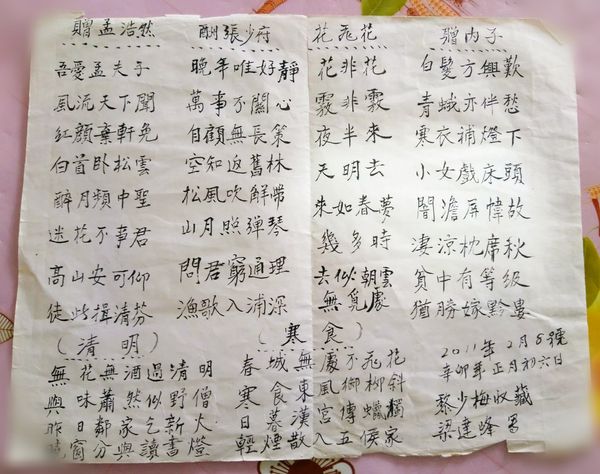 贈孟浩然
吾愛孟夫子
風流天下聞
紅顏棄軒免
白首卧松雲
醉月頻中聖
迷花不事君
高山安可仰
徒此揖清芬
酬張少府
晚年唯好靜
萬事不關心
自顧無長策
空知返舊林
松風吹解帶
山月照彈琴
問君窮通理
漁歌入浦深
花飛花
花非花
霧非霧
夜半來
天明去
來如春夢
幾多時
去似朝雲
無覓處
贈內子
白髮方興歎
青蛾亦伴愁
寒衣補燈下
小女戲床頭
闇澹屏幃故
淒涼枕席秋
貧中有等級
猶勝嫁黔婁
(清明)
無花無酒過清明
興味蕭然似野僧
昨日鄰家乞新火
曉窗分與讀書燈
(寒食)
春城無處不飛花
寒食東風御柳斜
日暮漢宮傳蠟燭
輕煙散入五侯家
2011年2月8號
辛卯年正月初六日
黎少梅收藏
梁達峰書